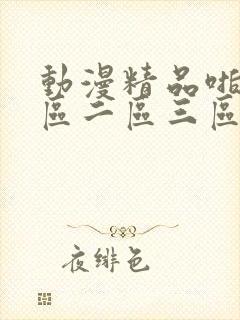 動漫精品啪
區二區三區
夜緋色